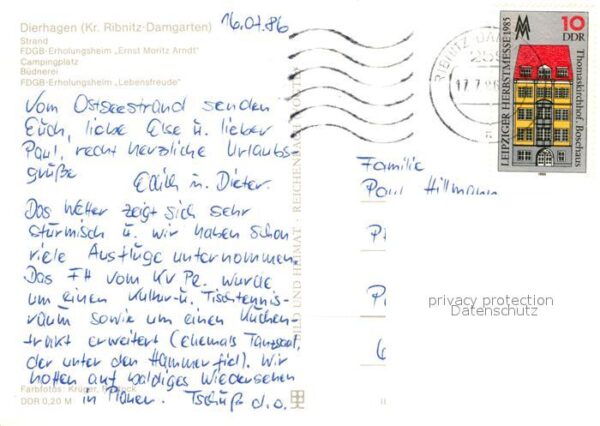 16.07.86
Dierhagen (Kr. Ribnitz-Damgarten)
Strand
FDGB-Erholungsheim „Ernst Moritz Arndt"
Campingplatz
Büdnerei
FDGB-Erholungsheim „Lebensfreude"
Vom Ostseestrand senden
Euch, liebe Else u. lieber
Paul, recht herzliche Urlaubs-
grüße
Edith u. Dieter.
Das Wetter zeigt sich sehr
stürmisch u. wir haben schon
viele Ausflüge unternommen.
Das FH vom KV Pl. wurde
um einen Kultur- u. Tischtennis-
raum sowie um einen Küchen-
trakt erweitert (ehemals Tanzsaal,
der unter den Hammer fiel). Wir
hoffen auf baldiges Wiedersehen
in Plauen. Tschüß d.o.
Farbfotos: Krüger,
DDR 0,20 M
BILD UND HEIMAT · REICHENBACH (VOGTL)
RIBNITZ-DAM
17.7.86
LEIPZIGER HERBSTMESSE 1985
10
DDR
Thomaskirchhof, Bosehaus
1985
Familie
Paul Hillmann
privacy protection
Datenschutz